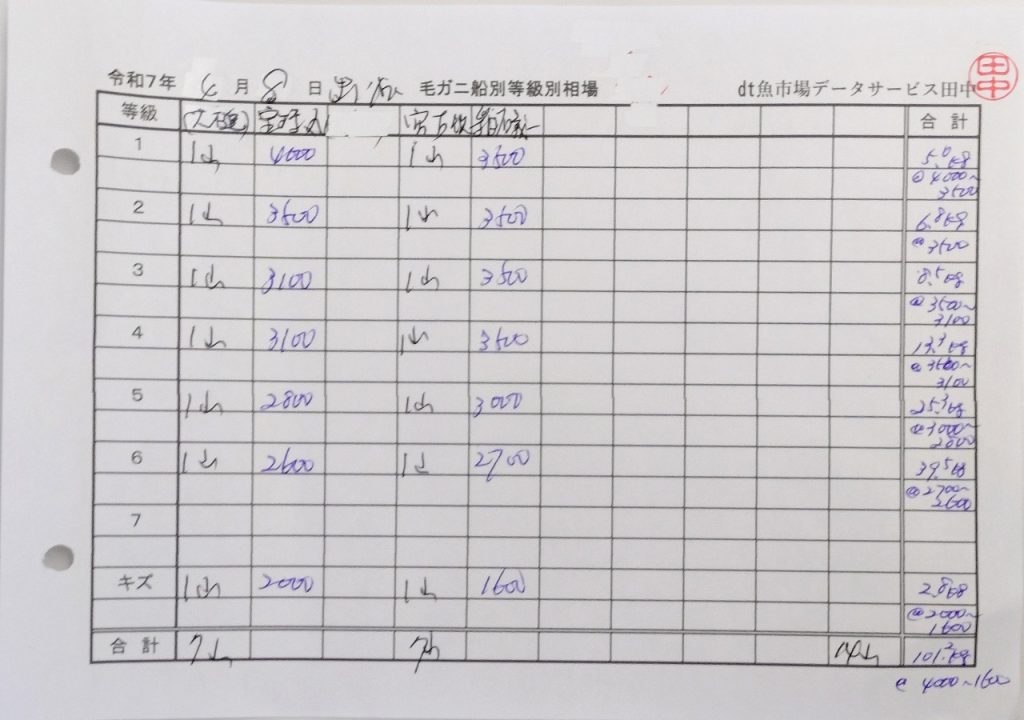 令和7年 4 月 8 日 毛ガニ船別等級別相場 dt魚市場データサービス田中 田中
等級 合計
1 1山 4000 1山 3500 5.0kg
@4000~
3500
2 1山 3500 1山 3500 6.8kg
@3500
3 1山 3100 1山 3500 8.5kg
@3500~
3100
4 1山 3100 1山 3500 13.3kg
@3500~
3100
5 1山 2800 1山 3000 25.3kg
@3000~
2800
6 1山 2600 1山 2700 39.5kg
@2700~
2600
7
キズ 1山 2000 1山 1600 2.8kg
@2000~
1600
合計 7山 7山 14山 101.2kg
@ 4000~1600